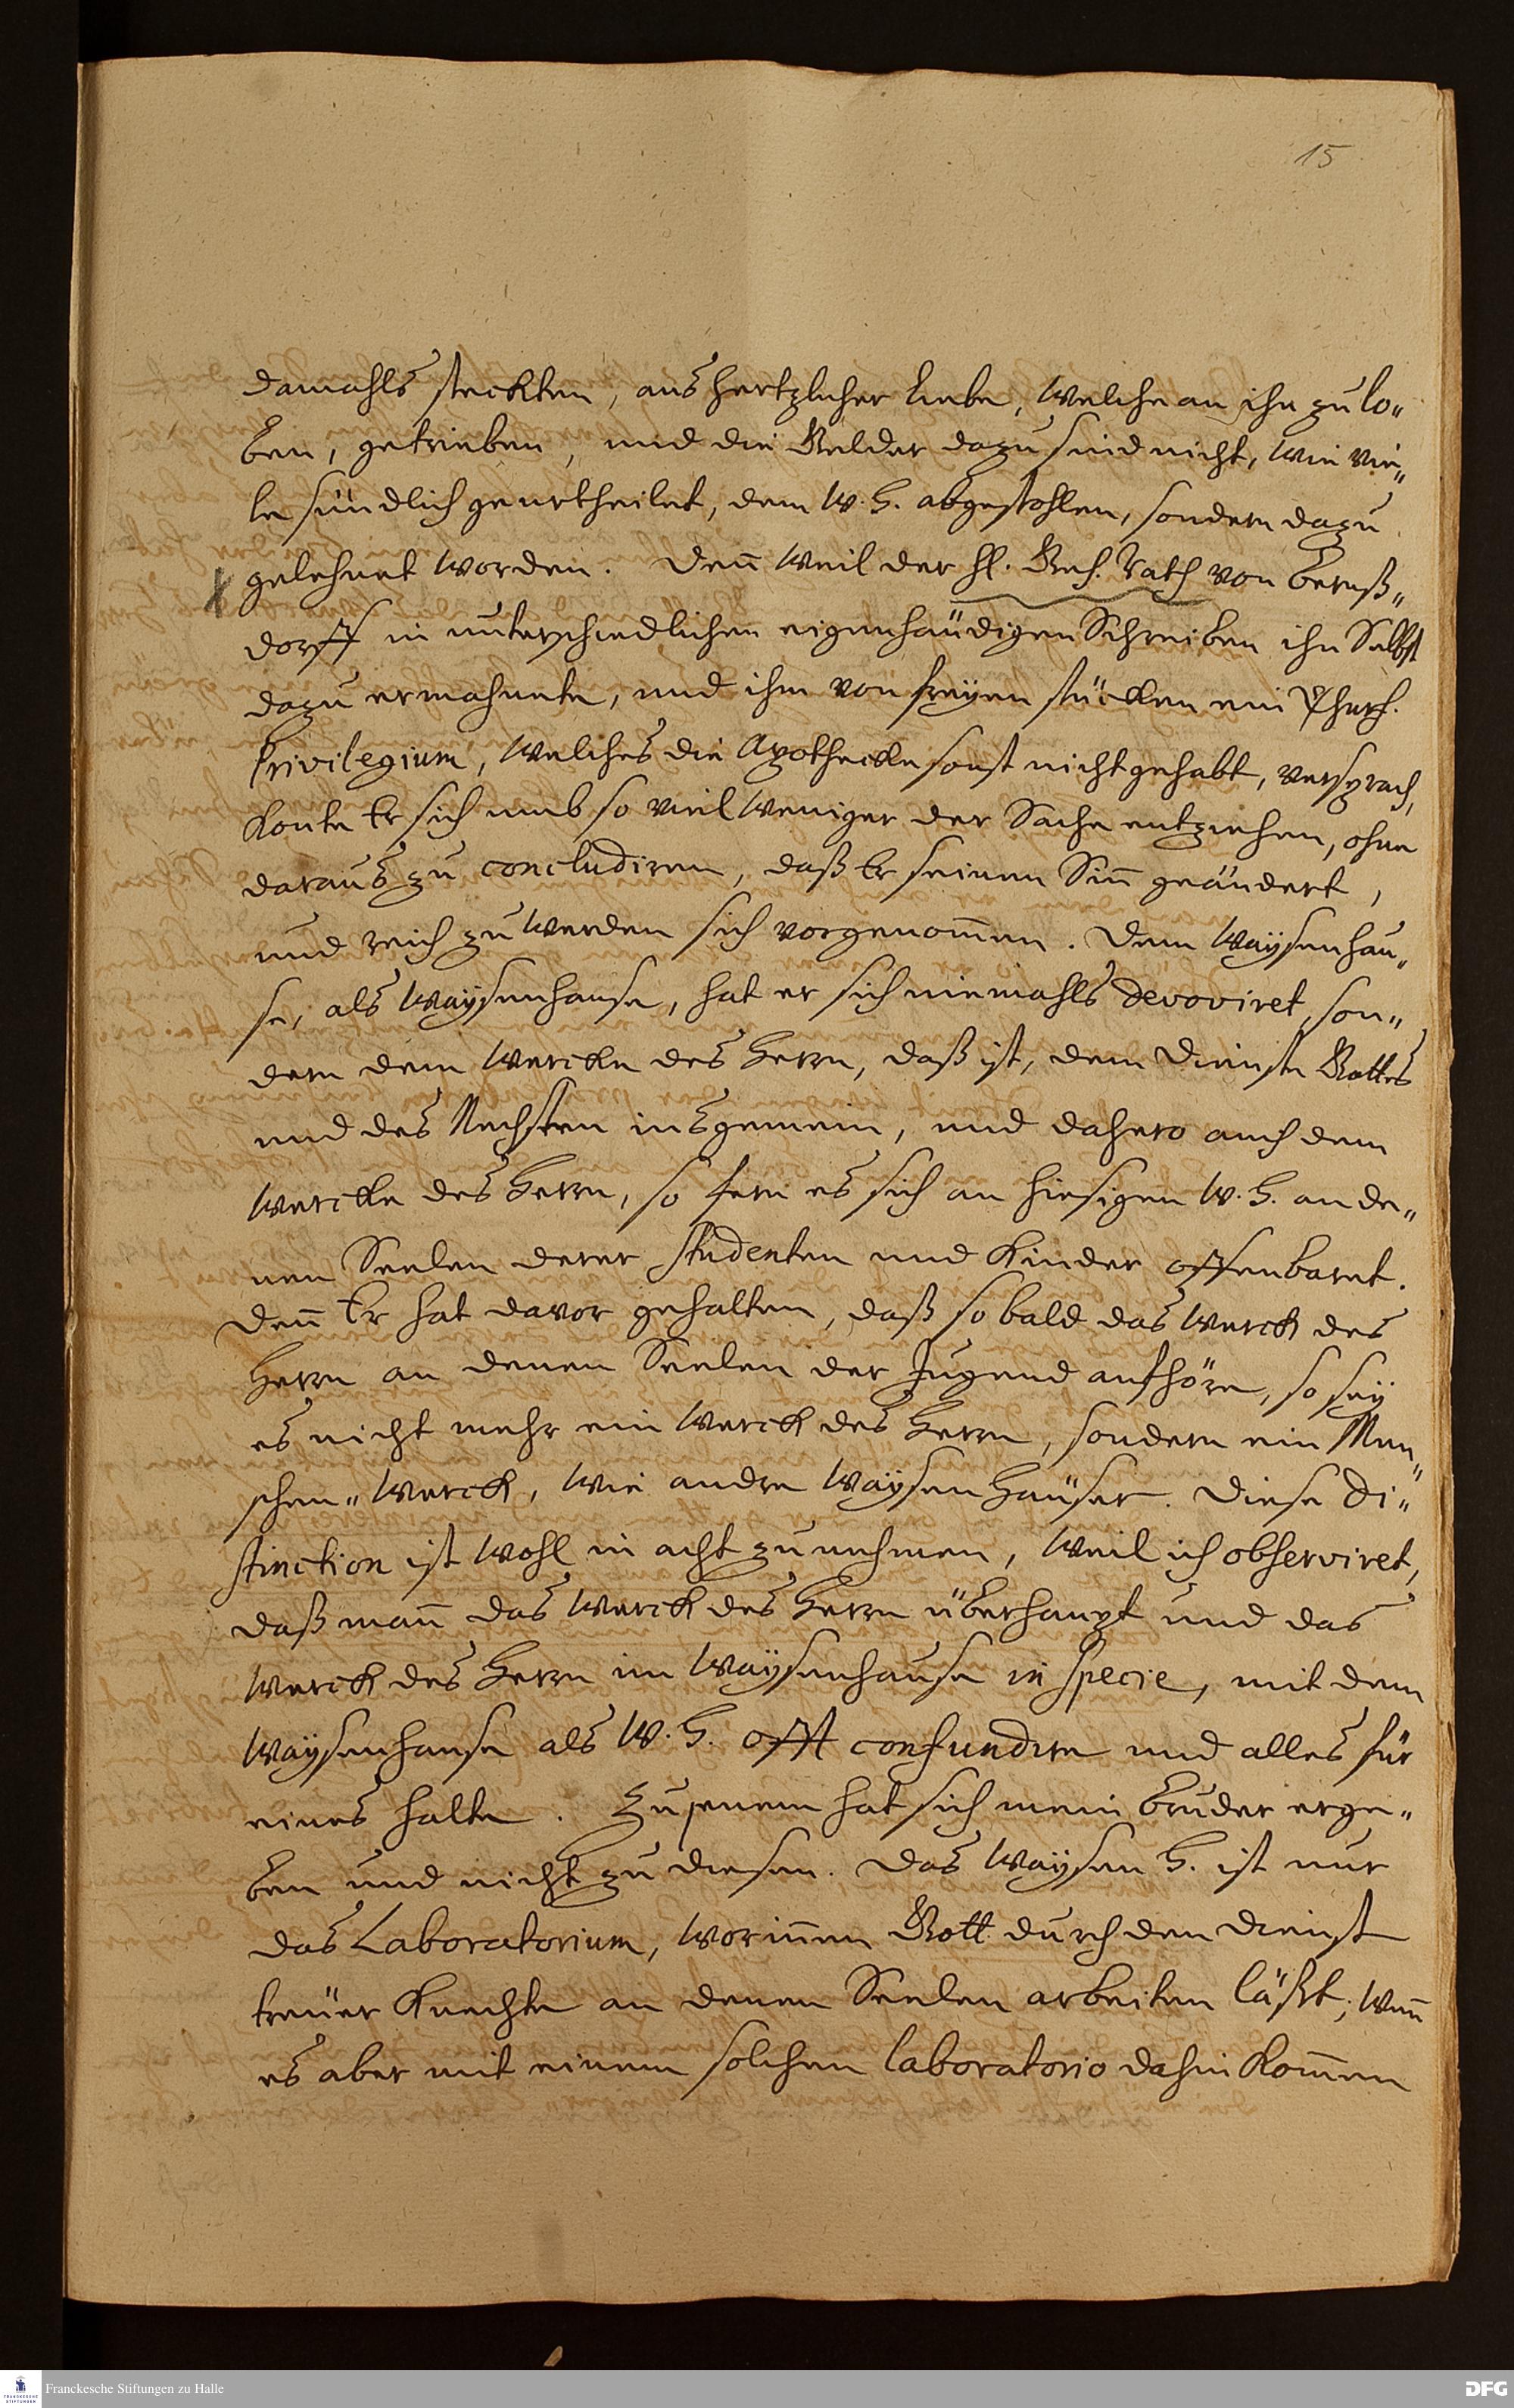 15
damahls steckten, aus hertzlicher Liebe, welche an ihn zu lo„
ben, getrieben, und die Gelder dazu sind nicht, wie vie„
le sündlich geurtheilet, dem W. H. abgestohlen, sondern dazu
gelehnet worden. Deñ weil der H. Geh. Rath von Berns„
dorff in unterschiedlichen eigenhändigen Schreiben ihn Selbst
dazu ermahnete, und ihm von freyen stücken ein Churf.
Privilegium, welches die Apothecke sonst nicht gehabt, versprach,
konte Er sich umb so viel weniger der Sache entziehen, ohne
daraus zu concludiren, daß Er seinen Siñ geändert,
und reich zu werden sich vorgenom̃en. Dem Waysenhau„
se, als Waysenhause, hat er sich niemahls devoviret, son„
dern dem Wercke des Herrn, daß ist, dem Dienste Gottes
und des Nechsten insgemein, und dahero auch dem
Wercke des Herrn, so fern es sich an hiesigen W. H. an de„
nen Seelen derer Studenten und Kinder offenbaret.
Deñ Er hat davor gehalten, daß so bald das Werck des
Herrn an denen Seelen der Jugend aufhöre, so sey
es nicht mehr ein Werck des Herrn, sondern ein Men„
schen„Werck, wie andre Waysen Häuser. Diese Di„
stinction ist wohl in acht zu nehmen, weil ich observiret,
daß mañ das Werck des Herrn überhaupt und das
Werck des Herrn im Waysenhause in Specie, mit dem
Waysenhause als W. H. offt confundire und alles für
eines halte. Zu jenem hat sich mein Bruder erge„
ben und nicht zu diesen. Das Waysen H. ist nur
das Laboratorium, woriñen Gott durch den Dienst
treuer Knechte an denen Seelen arbeiten läßt; weñ
es aber mit einem solchen Laboratorio dahin kom̃en
Franckesche Stiftungen zu Halle
DFG